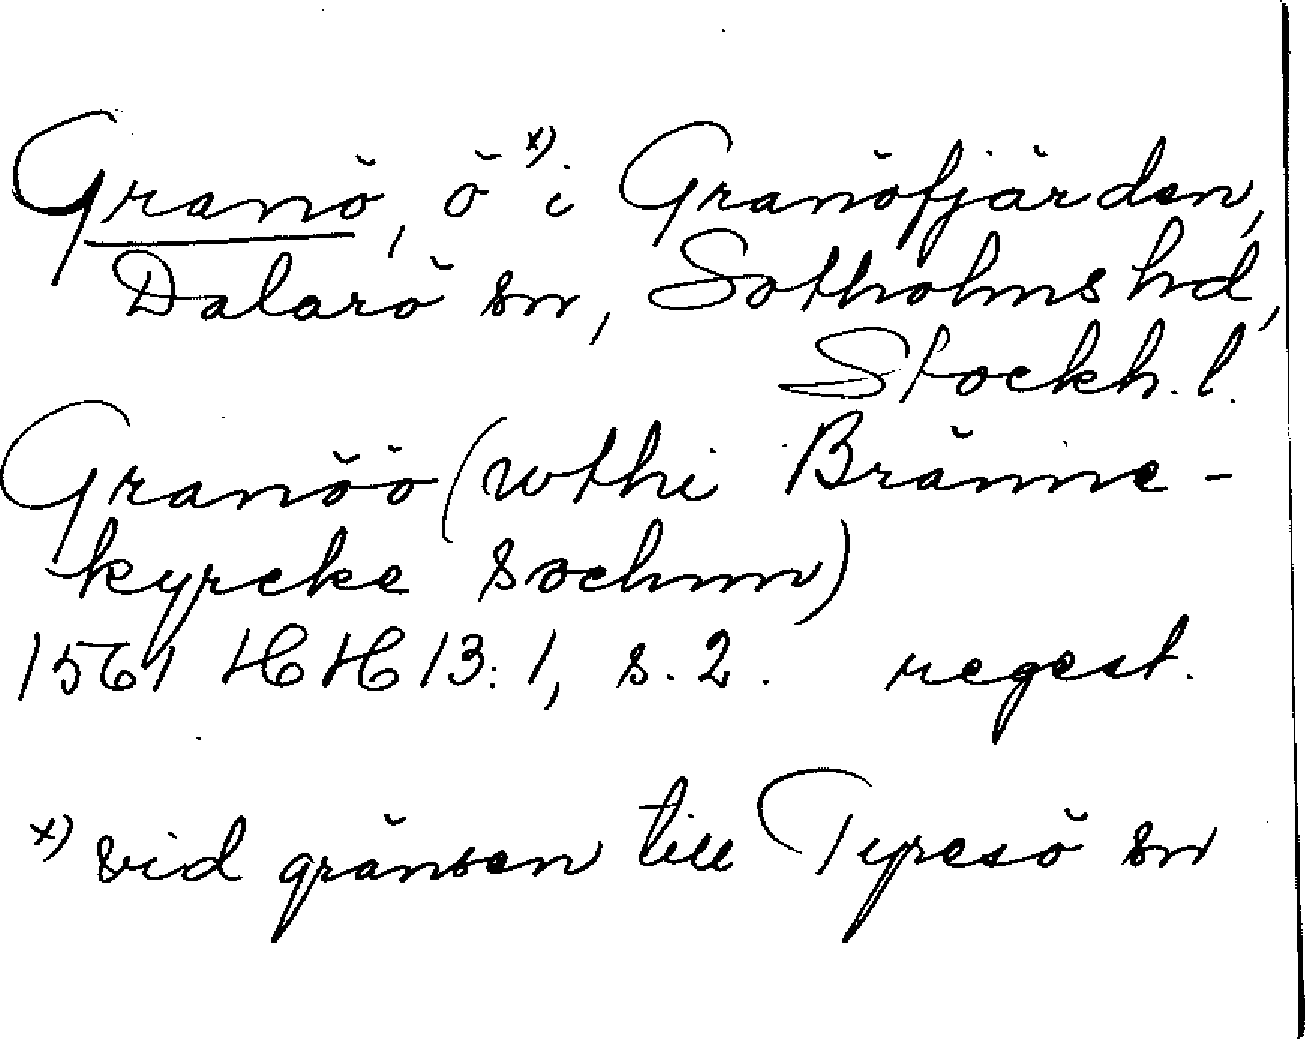 Granö, ö x) i Granöfjärden,
Dalarö sn, Sotholms hd,
Stockh. l.
Granöö (wthi Bränne-
kyrcke sochnn)
1561 HH 13:1, s. 2. regest.
x) vid gränsen till Tyresö sn